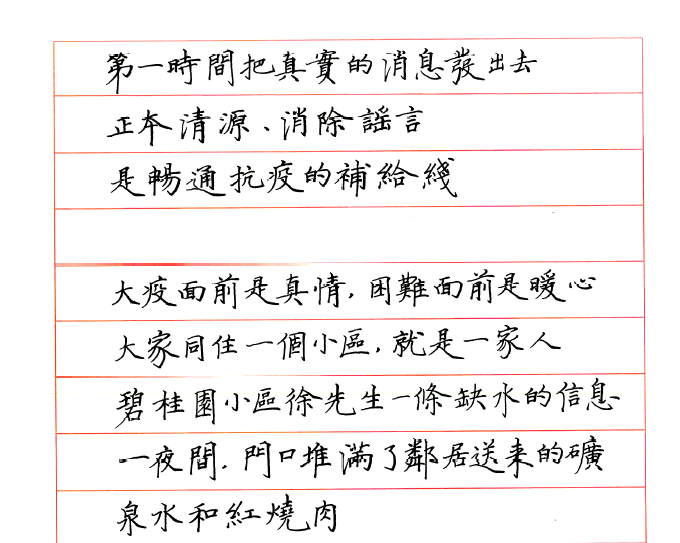 第一時間把真實的消息發出去
正本清源、消除謠言
是暢通抗疫的補給綫
大疫面前是真情,困難面前是暖心
大家同住一個小區,就是一家人
碧桂園小區徐先生一條缺水的信息
一夜間,門口堆滿了鄰居送來的礦
泉水和紅燒肉